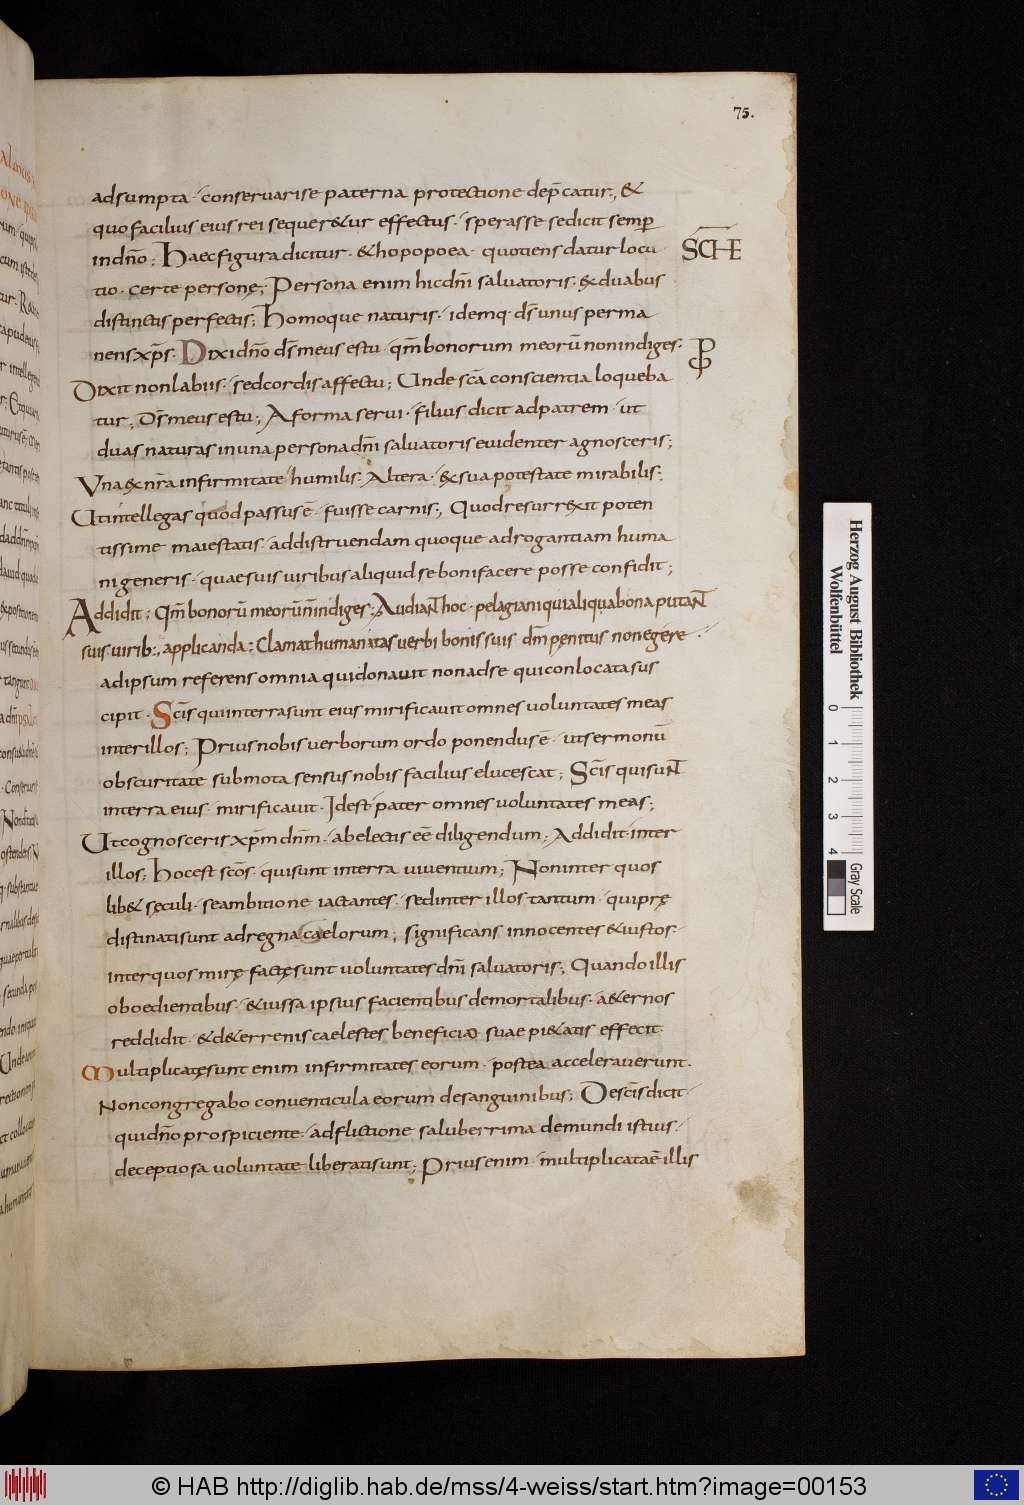 75.
adsumpta · conservari se paterna protectione dep̄catur., &
quo facilius eius rei sequer&ur effectus · sperasse se dicit semp̄
in dn̄o ; Haec figura dicitur · & hopopoea · quotiens datur locu
SCHE
tio · certe personę ; Persona enim hic dn̄i salvatoris · & duabus
distinctis perfectis ; Homoque naturis · idemq· ds̄ unus perma
nens xp̄s · Dixi dn̄o ds̄ meus es tu · qm̄ bonorum meorū non indiges ·
Dixit non labiis · sed cordis affectu ; Unde sc̄a conscientia loqueba
tur ., Ds̄ meus es tu ; A forma servi · filius dicit ad patrem · ut
duas naturas in una persona dn̄i salvatoris evidenter agnosceris ;
Una ex nr̄a infirmitate humilis · Altera · ex sua potestate mirabilis ;
Ut intellegas quod passus ē · fuisse carnis ., Quod resurrexit poten
tissime maiestatis · ad distruendam quoque adrogantiam huma
ni generis · quae suis viribus aliquid se boni facere posse confidit ;
Addidit ; Qm̄ bonorū meorū n̄ indiges ; Audiant hoc · pelagiani qui aliqua bona putant
suis virib: , applicanda ; Clamat humanitas verbi bonis suis dm̄ penitus non egere ·
ad ipsum referens omnia qui donavit non ad se qui conlocata sus
cipit · Sc̄is qui in terra sunt eius mirificavit omnes voluntates meas
inter illos ; Prius nobis verborum ordo ponendus ē · ut sermonū
obscuritate submota sensus nobis facilius elucescat ; Sc̄is qui sunt
in terra eius · mirificavit · Id est pater omnes voluntates meas ;
Ut cognosceris xp̄m dn̄m · ab electis eē diligendum ; Addidit inter
illos ; hoc est sc̄os · qui sunt in terra viventium ; Non inter quos
lib& sęculi · se ambitione iactantes · sed inter illos tantum · qui prę
distinati sunt ad regna caelorum ; significans innocentes & iustos ·
inter quos mirę factę sunt voluntates dn̄i salvatoris ; Quando illis
oboedientibus · & iussa ipsius facientibus de mortalibus · a&ernos
reddidit · & de terrenis caelestes beneficio suae pi&atis effecit ·
Multiplicatę sunt enim infirmitates eorum · postea acceleraverunt ·
Non congregabo conventicula eorum de sanguinibus ; De sc̄is dicit ·
qui dn̄o prospiciente · adflictione saluberrima de mundi istius ·
deceptiosa voluntate liberati sunt ; Prius enim · multiplicata ē illis
Herzog August Bibliothek
Wolfenbüttel
0 1 2 3 4 Gray Scale
© HAB http://diglib.hab.de/mss/4-weiss/start.htm?image=00153